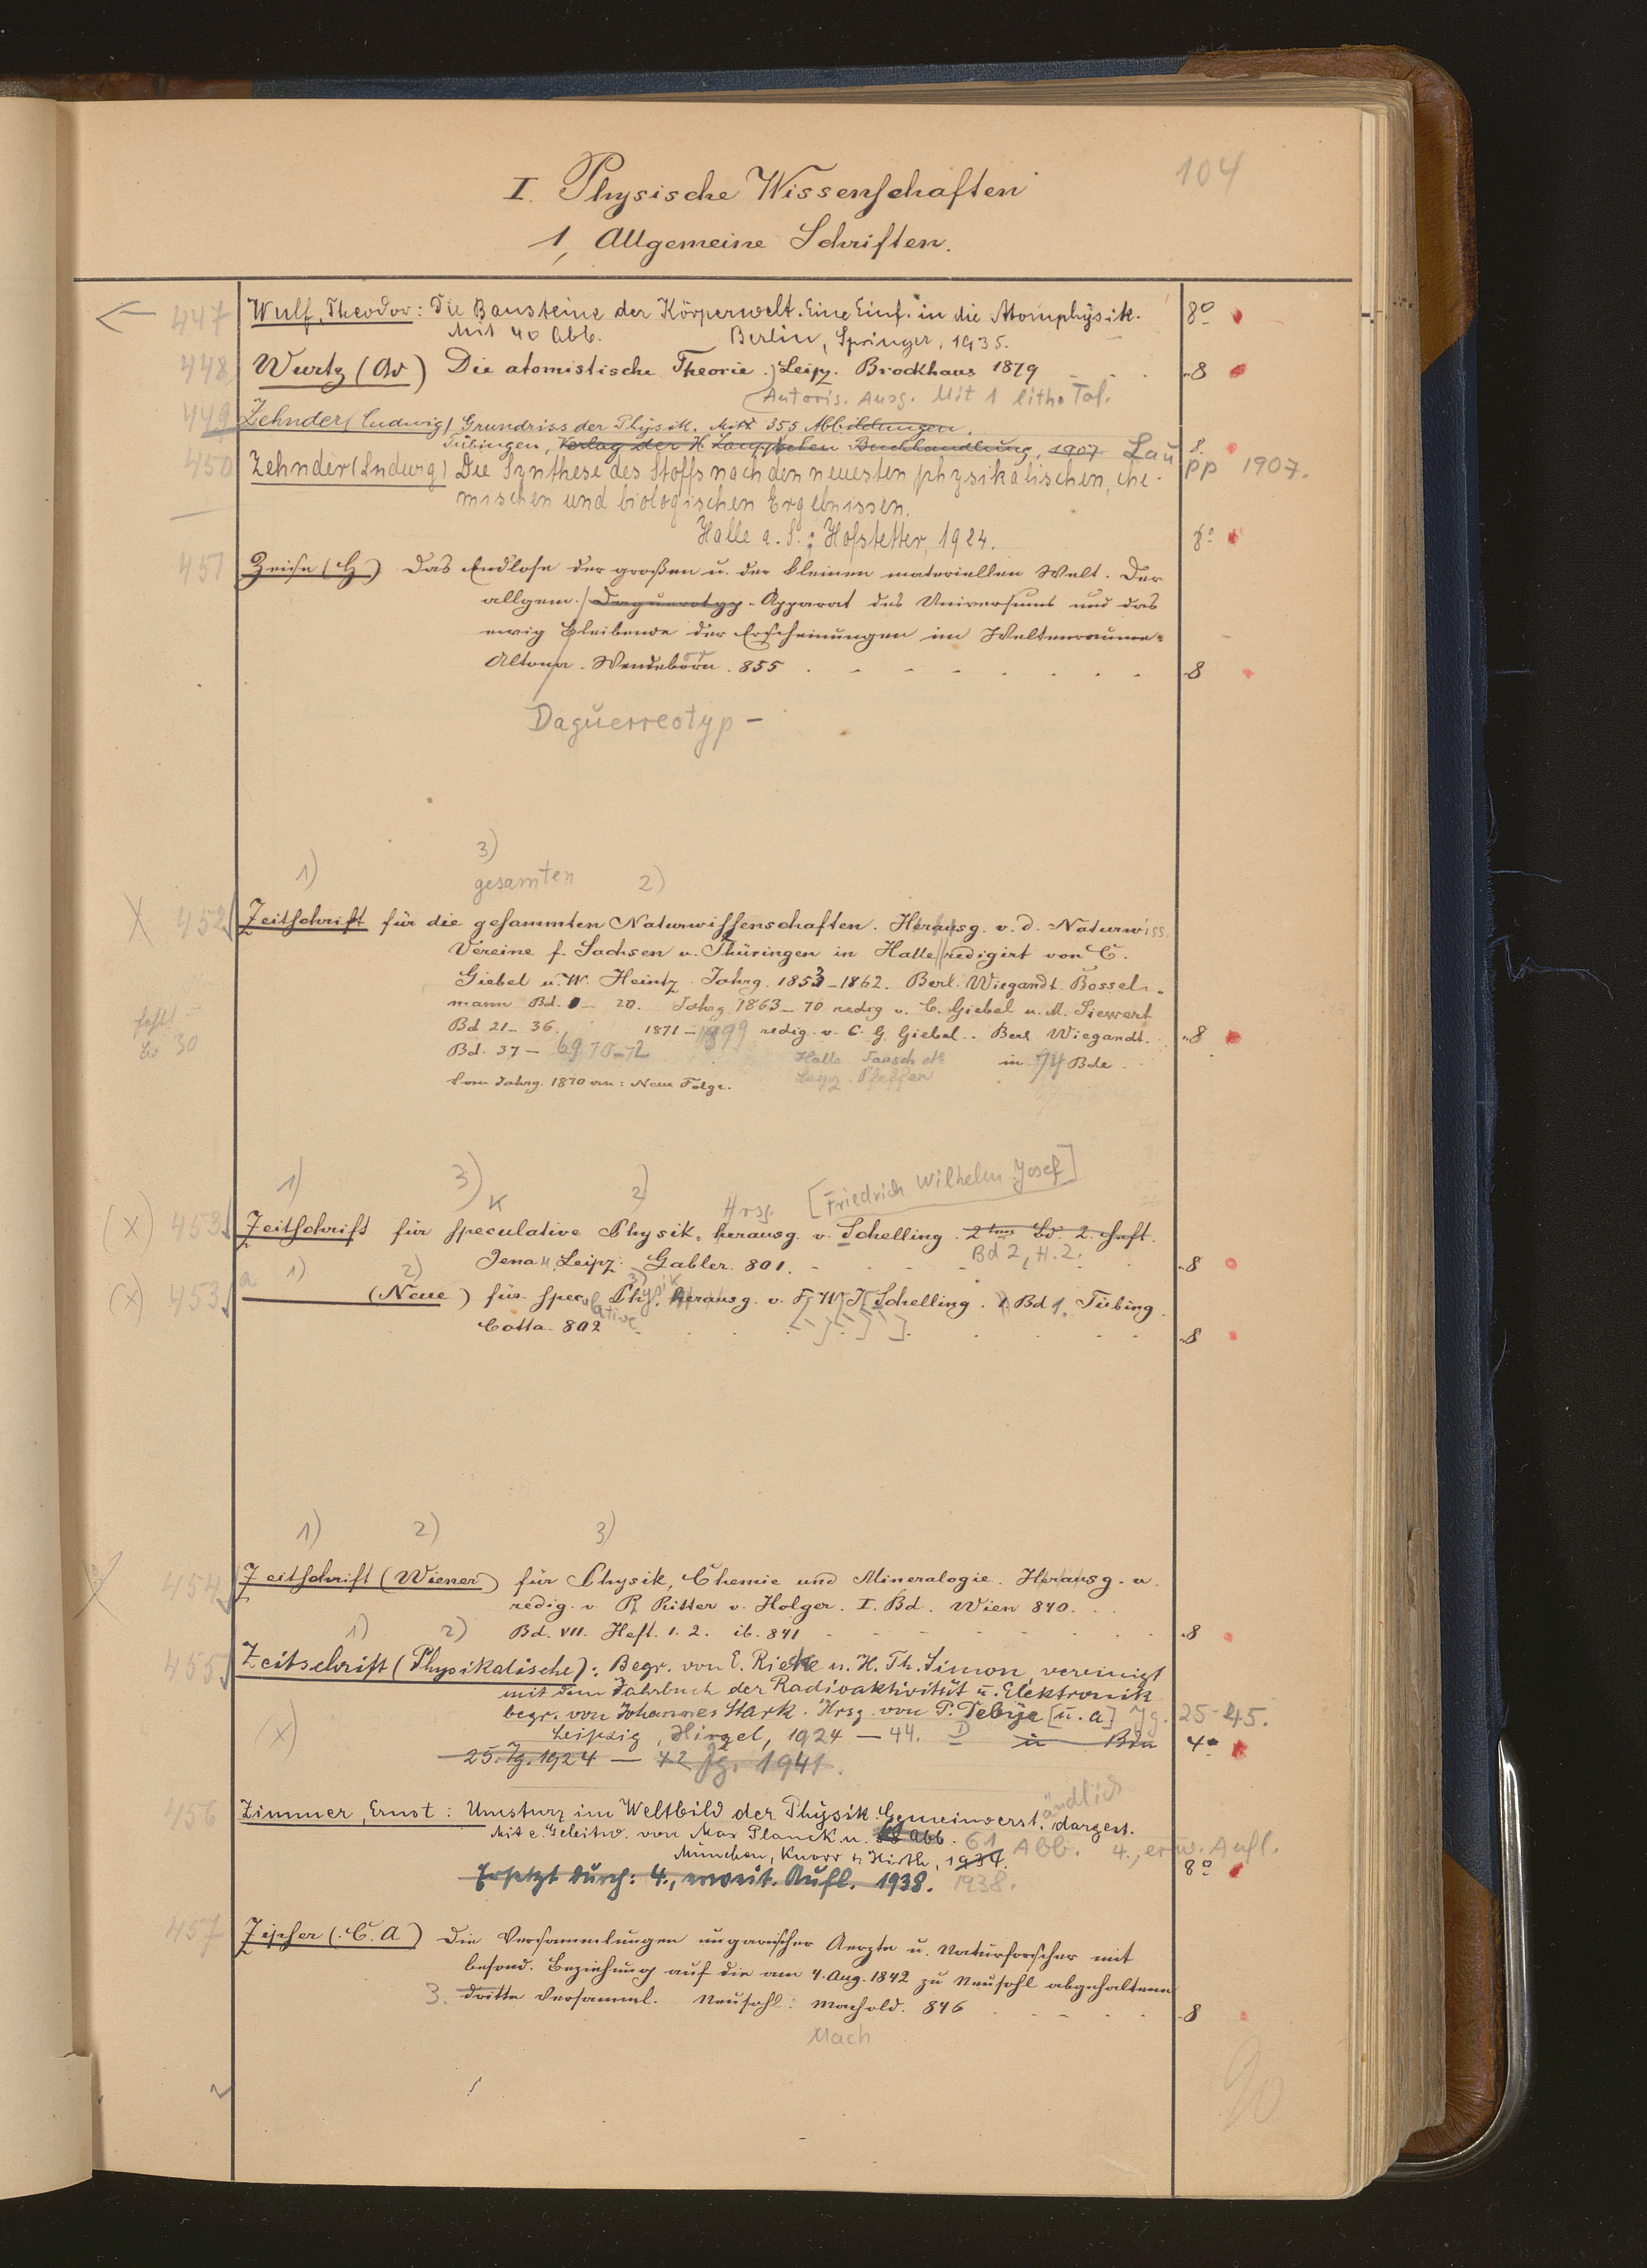 104
I. Physische Wissenschaften
1, Allgemeine Schriften.
447 Wulf, Theodor: Die Bausteine der Körperwelt. Eine Einf. in die Atomphysik. 8°
Mit 40 Abb. Berlin, Springer, 1935.
448 Wurtz (Ad) Die atomistische Theorie. Leipz. Brockhaus 1879 8
(Autoris. Ausg. Mit 1 lith. Taf.
449 Zehnder (Ludwig) Grundriss der Physik. Mit 355 Abbildungen.
Tübingen, Verlag der H. Laupp'schen Buchhandlung, 1907 Laupp 1907. 8.
450 Zehnder (Ludwig) Die Synthese des Stoffs nach den neuesten physikalischen, che-
mischen und biologischen Ergebnissen.
Halle a. S.: Hofstetter, 1924. 8°
451 Zeise (H) Das Endlose der großen u. der kleinen materiellen Welt. Der
allgem. Daguerotyp-Apparat des Universums und das
ewig Bleibende der Erscheinungen im Weltenraume.
Altona. Wendeborn. 855 8
Daguerreotyp-
3)
1) gesamten 2)
X 452 Zeitschrift für die gesammten Naturwissenschaften. Herausg. v. d. Naturwiss.
Vereine f. Sachsen u. Thüringen in Halle redigirt von C.
Giebel u. W. Heintz. Jahrg. 1853-1862. Berl. Wiegandt. Bossel-
mann Bd. - 20. Jahrg 1863-70 redig v. C. Giebel u. M. Siewert
fehlt
Bd 21-36. 1871-1899 redig. v. C. G. Giebel.. Berl Wiegandt. 8
30
Bd. 37- 69 70-72 Halle Tausch in 74 Bde
Vom Jahrg. 1870 an: Neue Folge. Leipz. Pfeffer
1) 3) K 2) Hrsg. [Friedrich Wilhelm Josef]
(X) 453 Zeitschrift für speculative Physik, herausg. v. Schelling. 2tns Bd. 2. Heft.
Jena u. Leipz: Gabler. 801. Bd 2, H. 2. 8
a 1) 2) 3)
(X) 453 (Neue) für speculative Physik. herausg. v. F. W. J. Schelling. Bd 1. Tübing.
Cotta. 802 8
1) 2) 3)
454 Zeitschrift (Wiener) für Physik, Chemie und Mineralogie. Herausg. u.
redig. v. P. Ritter v. Holger. I. Bd. Wien 840.
Bd. VII. Heft. 1. 2. ib. 841 8
1) 2)
455 Zeitschrift (Physikalische): Begr. von E. Riecke u. H. Th. Simon, vereinigt
mit dem Jahrbuch der Radioaktivität u. Elektronik
begr. von Johannes Stark. Hrsg. von P. Debije [u. a] Jg. 25-45.
(X) Leipzig, Hirzel, 1924 - 44. D in Bdn 4°
25. Jg. 1924 - 42 Jg. 1941.
456 Zimmer, Ernst: Umsturz im Weltbild der Physik. Gemeinverständlich dargest.
Mit e. Geleitw. von Max Planck u. Abb. 61 Abb. 4., erw. Aufl.
München, Knorr & Hirth, 1934. 8°
Ersetzt durch: 4., erweit. Aufl. 1938. 1938.
457 Zipser (C. A) Die Versammlungen ungarischer Aerzte u. Naturforscher mit
besond. Beziehung auf die am 4. Aug. 1842 zu Neusohl abgehaltene
3. dritte Versamml. Neusohl: Machold. 846 8
Mach
90